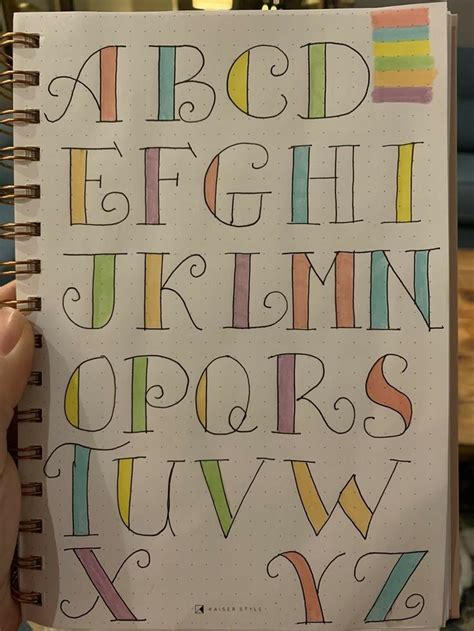 ABCD
EFGHI
JKLMN
OPQRS
TUVW
XYZ
KAISER STYLE